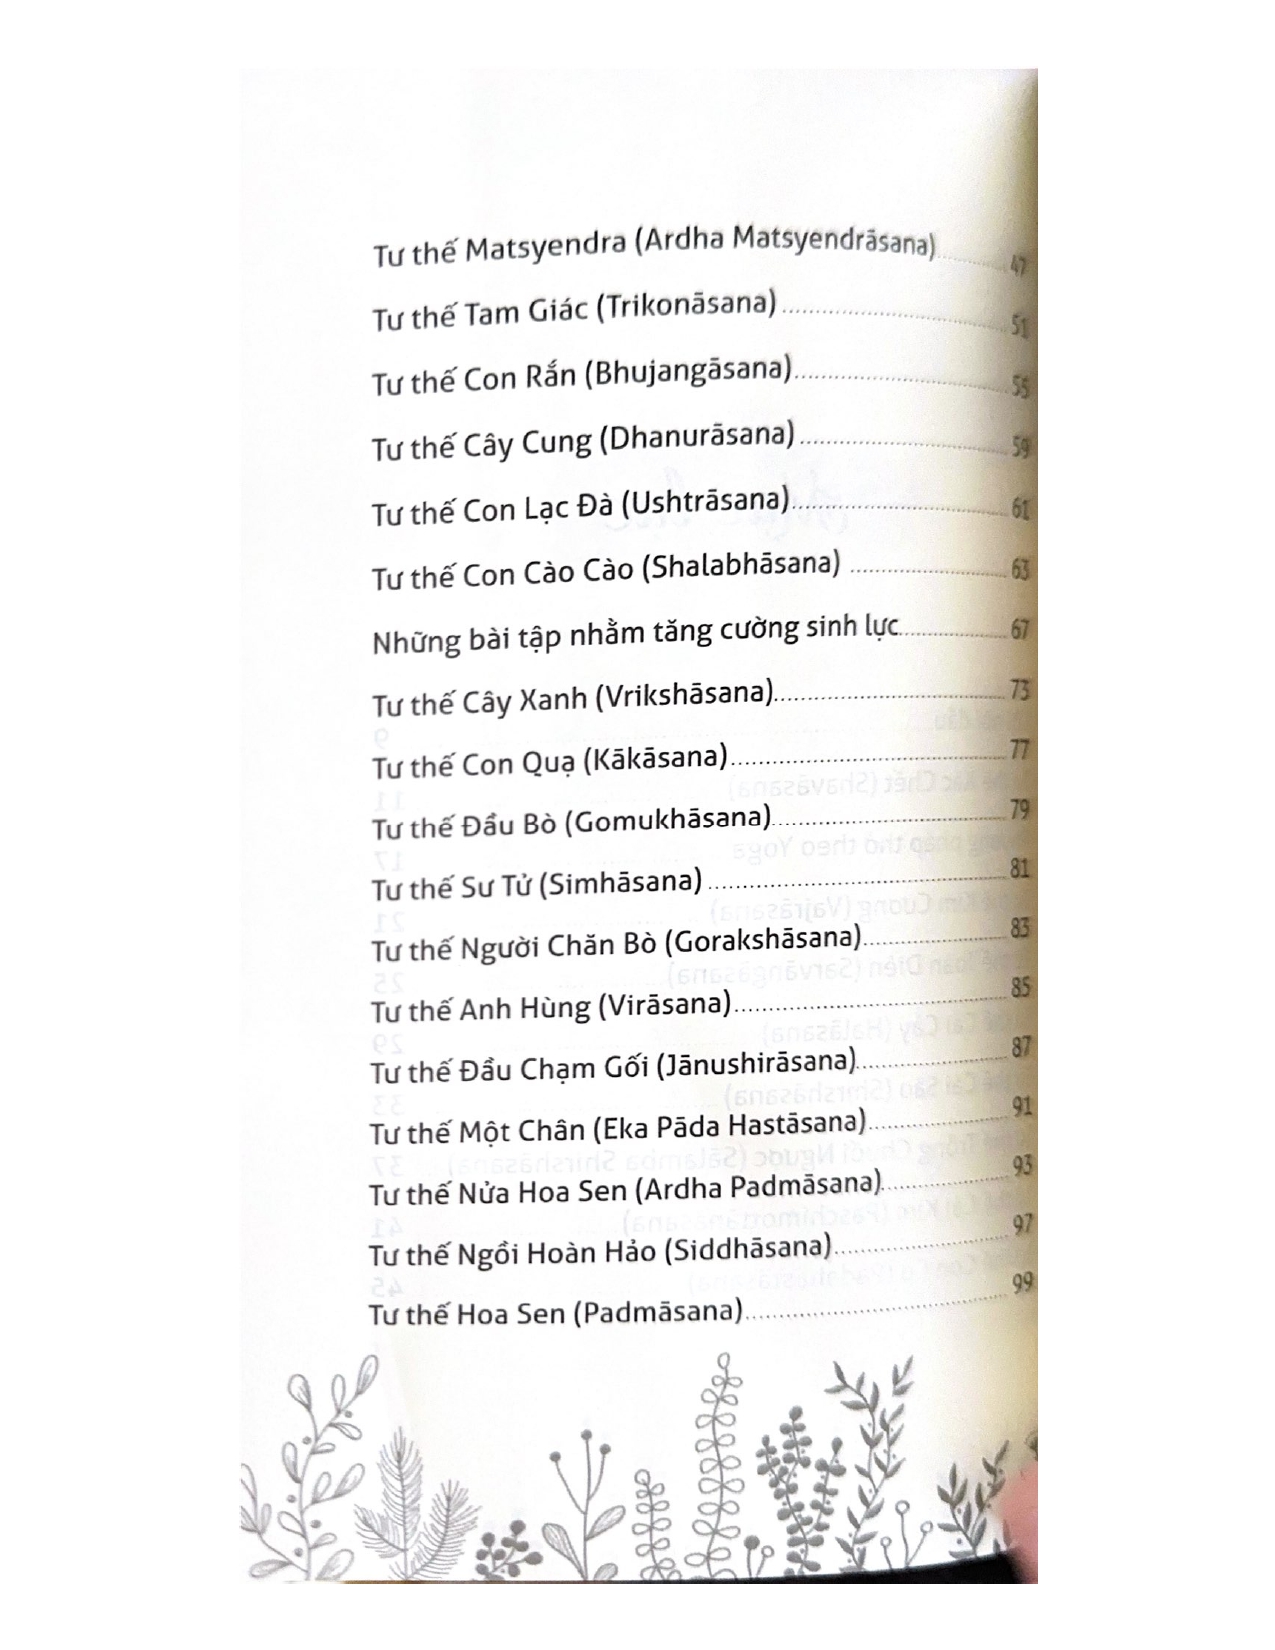 Tư thế Matsyendra (Ardha Matsyendrāsana) 47
Tư thế Tam Giác (Trikonāsana) 51
Tư thế Con Rắn (Bhujangāsana) 55
Tư thế Cây Cung (Dhanurāsana) 59
Tư thế Con Lạc Đà (Ushtrāsana) 61
Tư thế Con Cào Cào (Shalabhāsana) 63
Những bài tập nhằm tăng cường sinh lực 67
Tư thế Cây Xanh (Vrikshāsana) 73
Tư thế Con Quạ (Kākāsana) 77
Tư thế Đầu Bò (Gomukhāsana) 79
Tư thế Sư Tử (Simhāsana) 81
Tư thế Người Chăn Bò (Gorakshāsana) 83
Tư thế Anh Hùng (Virāsana) 85
Tư thế Đầu Chạm Gối (Jānushirāsana) 87
Tư thế Một Chân (Eka Pāda Hastāsana) 91
Tư thế Nửa Hoa Sen (Ardha Padmāsana) 93
Tư thế Ngồi Hoàn Hảo (Siddhāsana) 97
Tư thế Hoa Sen (Padmāsana) 99